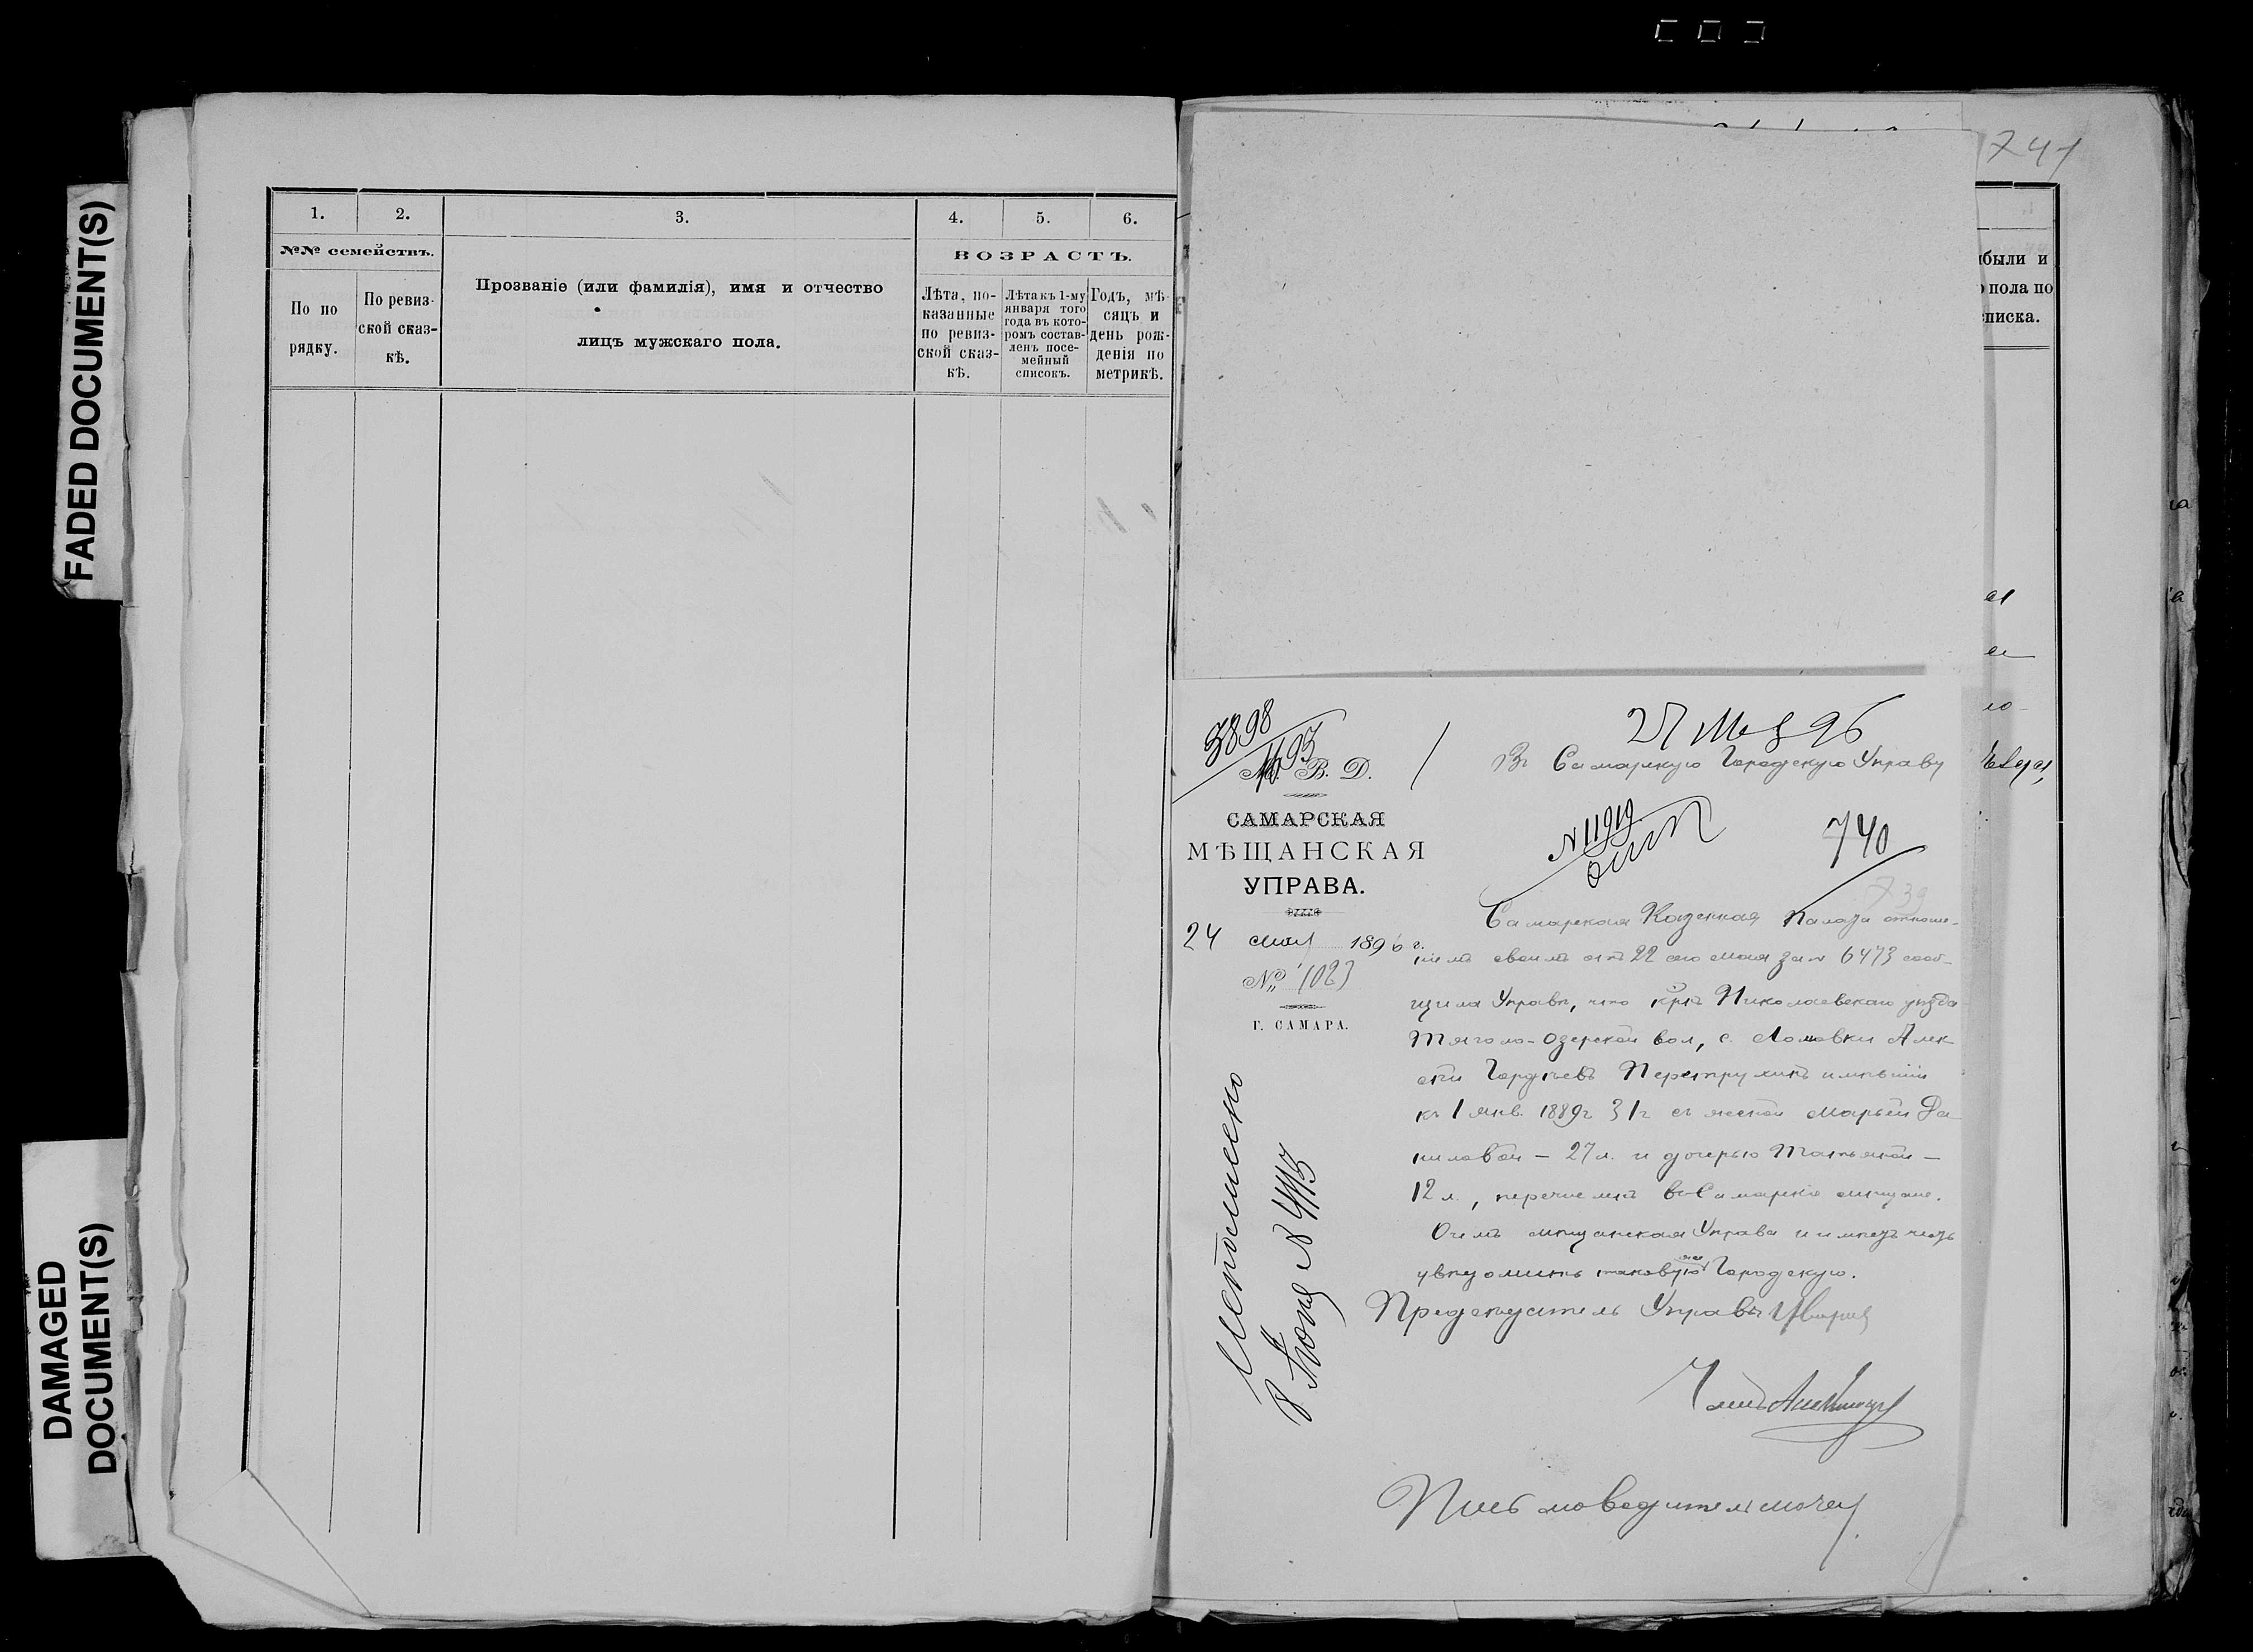 FADED DOCUMENT(S)
DAMAGED
DOCUMENT(S)
1.
2.
3.
4.
5.
6.
№№ семействъ.
ВОЗРАСТЪ.
По по
рядку.
По ревиз-
ской сказ-
кѣ.
Прозваніе (или фамилія), имя и отчество
лицъ мужскаго пола.
Лѣта, по-
казанные
по ревиз-
ской сказ-
кѣ.
Лѣта къ 1-му
января того
года въ кото-
ромъ состав-
ленъ посе-
мейный
списокъ.
Годъ, мѣ-
сяцъ и
день рож-
денія по
метрикѣ.
741
были и
пола по
списка.
3898
М. В. Д.
САМАРСКАЯ
МѢЩАНСКАЯ
УПРАВА.
24 мая 1896 г.
№ 1023
Г. САМАРА.
27 Мая 96
Въ Самарскую Городскую Управу
N 11919
740
739
Самарская Казенная Палата отноше-
ніемъ своимъ отъ 22 сего мая за N 6473 сооб-
щила Управѣ, что кр-нъ Николаевскаго уѣзда
Тяголо-Озерской вол, с. Ломовки Алек-
сѣй Гордѣевъ Перетрухинъ имѣвшій
къ 1 янв. 1889г 31г съ женой Марьей Да-
ниловой - 27 л. и дочерью Татьяной -
12 л., перечисленъ въ Самарскіе мѣщане.
О чемъ мѣщанская Управа и имѣетъ честь
увѣдомить таковую же Городскую.
Предсѣдатель Управы
Членъ
Письмоводитель
Исполнено
8 Іюня N 4113